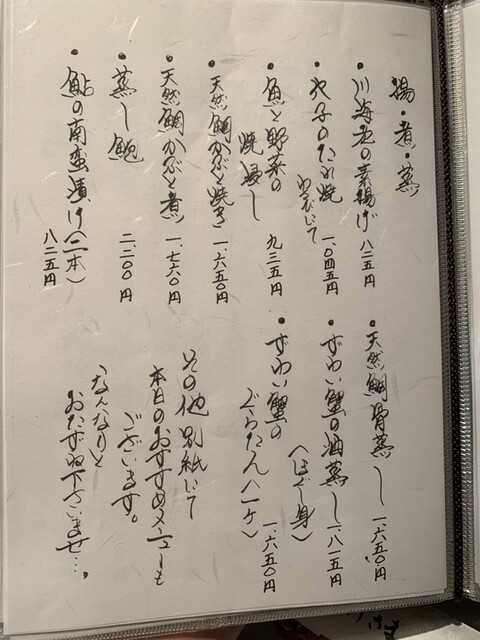 揚・煮・蒸
・川海老の素揚げ 八二五円
・穴子のたれ焼 わさびにて 一、〇四五円
・魚と野菜の
焼浸し 九三五円
・天然鯛かぶと焼き 一、六五〇円
・天然鯛かぶと煮 一、七六〇円
・蒸し鮑 二、二〇〇円
・鮎の南蛮漬け(二本)
八二五円
・天然鯛骨蒸し 一、六五〇円
・ずわい蟹の酒蒸し 一、八一五円
(ほぐし身)
・ずわい蟹の
ぐらたん(一ケ) 一、六五〇円
その他 別紙にて
本日のおすすめメニューも
ございます。
なんなりと
おたずね下さいませ…。